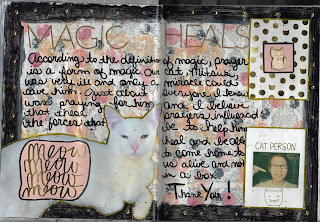 MAGIC HEALS
According to the definition of magic, prayer
is a form of magic. Our cat,
was very ill and only a miracle could
save him. Just about everyone I know
was praying for him and I believe
that these prayers influenced
the forces that be to help him
heal and be able
to come home to
us alive and not
in a box.
Thank You!
meow
meow
meow
meow
CAT PERSON